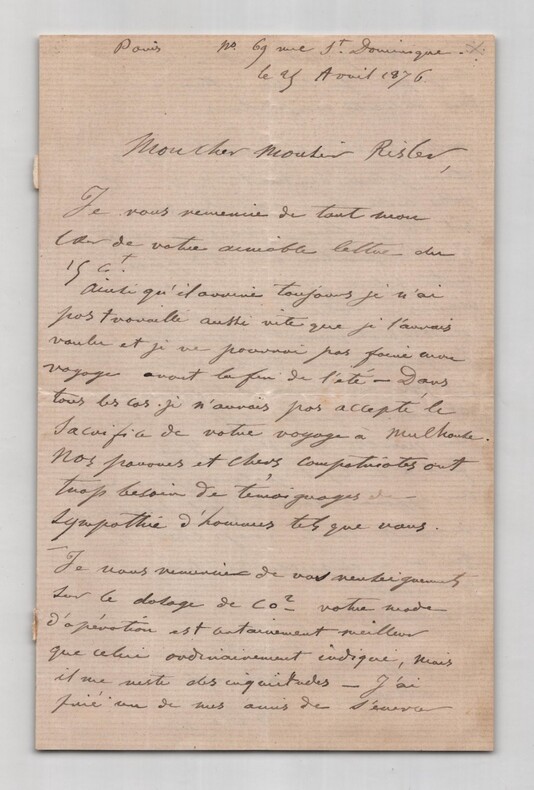 Paris No 69 rue St. Dominique.
le 25 Avril 1876
Mon cher Monsieur Risler,
Je vous remercie de tout mon
cœur de votre aimable lettre du
15 Ct.
Ainsi qu'il arrive toujours je n'ai
pas travaillé aussi vite que je l'aurais
voulu et je ne pourrai pas faire mon
voyage avant la fin de l'été – Dans
tous les cas je n'aurais pas accepté le
sacrifice de votre voyage a Mulhouse.
Nos pauvres et chers compatriotes ont
trop besoin de témoignages de
sympathie d'hommes tels que vous.
Je vous remercie de vos renseignements
sur le dosage de CO2 votre mode
d'opération est certainement meilleur
que celui ordinairement indiqué, mais
il me reste des inquiétudes – J'ai
prié un de mes amis de s'exercer